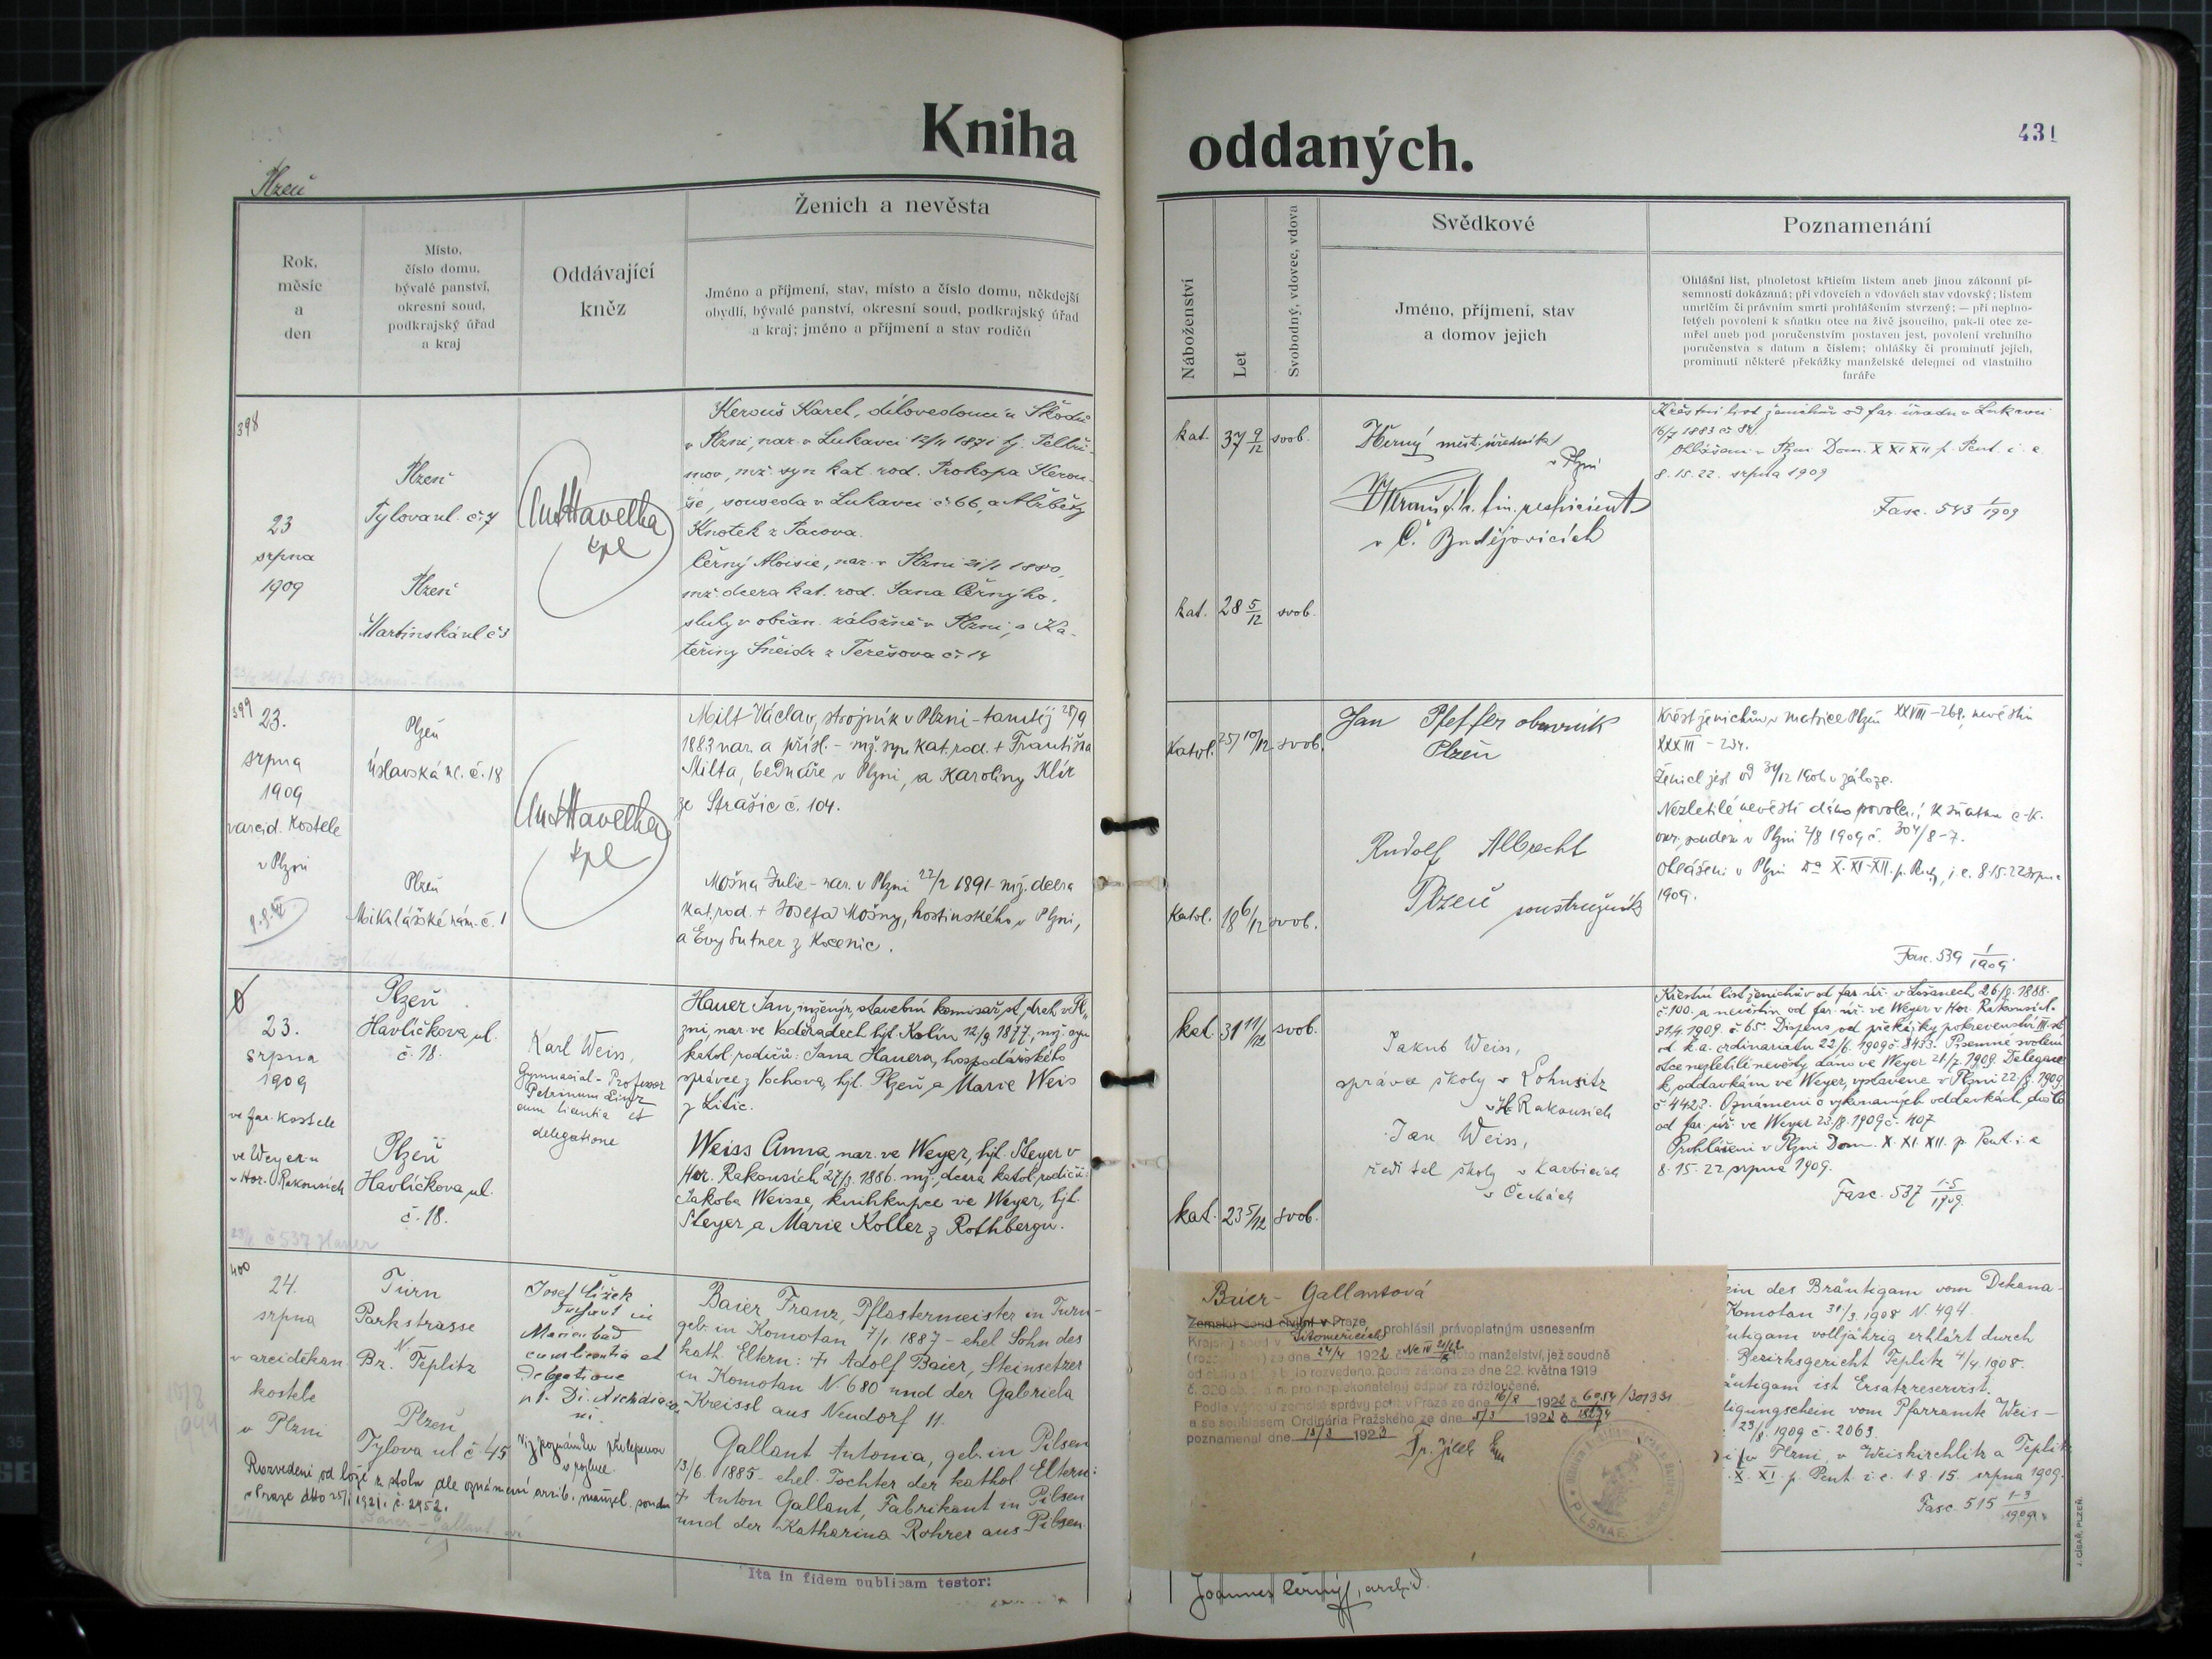 Kniha oddaných.
431
Plzeň
Rok,
měsíc
a
den
Místo,
číslo domu,
bývalé panství,
okresní soud,
podkrajský úřad
a kraj
Oddávající
kněz
Ženich a nevěsta
Jméno a příjmení, stav, místo a číslo domu, někdejší
obydlí, bývalé panství, okresní soud, podkrajský úřad
a kraj; jméno a příjmení a stav rodičů
Náboženství
Let
Svobodný, vdovec, vdova
Svědkové
Jméno, příjmení, stav
a domov jejich
Poznamenání
Ohlášní list, plnoletost křticím listem aneb jinou zákonní pí-
semností dokázaná; při vdovcích a vdovách stav vdovský; listem
umrlčím či právním smrti prohlášením stvrzený; — při neplno-
letých povolení k sňatku otce na živě jsoucího, pak-li otec ze-
mřel aneb pod poručenstvím postaven jest, povolení vrchního
poručenstva s datum a číslem; ohlášky či prominutí jejich,
prominutí některé překážky manželské delegací od vlastního
faráře
398
23
srpna
1909
Plzeň
Tylova ul. č. 7
Plzeň
Martinská ul č 3
Ant Havelka
kpl
Kerouš Karel, dílovedoucí u Škodů
v Plzni, nar. v Lukavci 12/11 1871 hj. Pelhři-
mov, mž. syn kat. rod. Prokopa Kerou-
še, souseda v Lukavci č 66, a Alžběty
Knotek z Pacova.
Černý Aloisie, nar. v Plzni 21/2 1880,
mž. dcera kat. rod. Jana Černýho,
sluhy v občan. záložně v Plzni, a Ka-
teřiny Šneidr z Terešova č. 14
kat. 37 9/12 svob.
kat. 28 5/12 svob.
měst. úředník
v Plzni
fin. respicient
v Č. Budějovicích
Křestní list ženichův od far. úřadu v Lukavci
16/7 1883 č 84.
Ohlášeni v Plzni Dom. X XI XII p. Pent. i. e.
8. 15. 22. srpna 1909
Fasc. 543 1/1909
399
23.
srpna
1909
v arcid. kostele
v Plzni
Plzeň
Úslavská ul. č. 18
Plzeň
Mikulášské nám. č. 1
Ant Havelka
kpl
Milt Václav, strojník v Plzni - tamtéj 28/9
1883 nar. a přísl. - mž. syn kat. rod. + Františka
Milta, bednáře v Plzni, a Karoliny Klír
ze Strašic č. 104.
Mošna Julie - nar. v Plzni 22/2 1891 - mž. dcera
kat. rod. + Josefa Mošny, hostinského v Plzni,
a Evy Sutner z Kocenic.
Katol. 25 10/12 svob.
Katol. 18 6/12 svob.
Jan Pfeffer obuvník
Plzeň
Rudolf Albrecht
Plzeň soustružník
Křest ženichův v matrice Plzeň XXVIII - 269. nevěstin
XXXIII - 234.
Ženich jest od 31/12 1906 v záloze.
Nezletilé nevěstě dáno povolení k sňatku c. k.
okr. soudem v Plzni 7/8 1909 č. 304/8-7.
Ohlášeni v Plzni Do X. XI. XII. p. Pent., i. e. 8. 15. 22 srpna
1909.
Fasc. 539 1/1909
23.
srpna
1909
ve far. kostele
ve Weyeru
v Hor. Rakousích
Plzeň
Havlíčkova ul.
č. 18.
Plzeň
Havlíčkova ul.
č. 18.
Karl Weiss,
Gymnasial-Professor
Petrinum Linz
cum licentia et
delegatione
Hauer Jan, inženýr, stavební komisař st. drah v Pl-
zni, nar. ve Kodeřadech hjt. Kolín 12/9 1877, mž. syn
katol. rodičů: Jana Hauera, hospodářského
správce z Vochova, hjt. Plzeň a Marie Weis
z Litic.
Weiss Anna, nar. ve Weyer, hjt. Steyer v
Hor. Rakousích 27/3. 1886. mž. dcera katol. rodičů:
Jakoba Weisse, knihkupce ve Weyer, hjt.
Steyer, a Marie Koller z Rothbergu.
kat. 31 11/12 svob.
kat. 23 5/12 svob.
Jakub Weiss,
správce školy v Lohnsitz
v H. Rakousích
Jan Weiss,
ředitel školy v Karbicích
v Čechách
Křestní list ženichův od far. úř. v Lošanech 26/8. 1888.
č. 100. a nevěstin od far. úř. ve Weyer v Hor. Rakousích.
31.4. 1909. č 65. Dispens od překážky pokrevenství III. st
od k. a. ordinariatu 22/6. 1909 č. 8433. Písemné svolení
otce nezletilé nevěsty dáno ve Weyer 21/7. 1909. Delegace
k oddavkám ve Weyer, vystavena v Plzni 22/8. 1909
č 4423. Oznámení o vykonaných oddavkách došlo
od far. úř. ve Weyer 23/8. 1909 č. 407
Prohlášeni v Plzni Dom. X. XI. XII. p. Pent. i. e
8. 15. 22. srpna 1909.
Fasc. 537 1-5/1909
23/8 č 537 Hauer
400
24.
srpna
v arcidekan
kostele
v Plzni
Turn
Parkstrasse
N.
Bz. Teplitz
Plzeň
Tylova ul č 45
Josef Čížek
in
Marienbad
cum licentia et
Delegatione
p. t. D. Archidiaco-
ni.
Viz poznámku přilepenou
v příloze.
Rozvedeni od lože a stolu dle oznámení arcib. manžel. soudu
v Praze dtto 25/1 1921. č. 2952.
Baier Franz, Pflastermeister in Turn -
geb. in Komotan 7/1 1887 - ehel. Sohn des
kath. Eltern: + Adolf Baier, Steinsetzer
in Komotan N. 680 und der Gabriela
Kreissl aus Neudorf 11.
Gallant Antonia, geb. in Pilsen
13/6. 1885 - ehel. Tochter der kathol. Eltern:
+ Anton Gallant, Fabrikant in Pilsen
und der Katharina Rohrer aus Pilsen.
Baier - Gallantová
Zemský soud civilní v Praze
Krajský soud v Litoměřicích prohlásil právoplatným usnesením
ze dne 24/4 1922 manželství, jež soudně
rozvedeno, podle zákona ze dne 22. května 1919
č. 320 sb. z. a n. pro nepřekonatelný odpor za rozloučené.
Podle zemské správy polit. v Praze ze dne 16/8 1922 č 6054/301331
a se souhlasem Ordinária Pražského ze dne 5/3 1923 č
poznamenal dne 13/3 1923
ein des Bräutigam vom Dekana-
Komotan 31/3. 1908 N. 494.
utigam volljährig erklärt durch
Bezirksgericht Teplitz 4/4. 1908.
äutigam ist Ersatzreservist.
ligungschein vom Pfarramte Weis-
23/8. 1909 č. 2063.
v Plzni, v Weiskirchlitz a Teplitz
X. XI. p. Pent. i. e. 1. 8. 15. srpna 1909.
Fasc. 515 1-3/1909
Ita in fidem publicam testor:
Joannes Černý, archid.
J. CÍSAŘ, PLZEŇ.